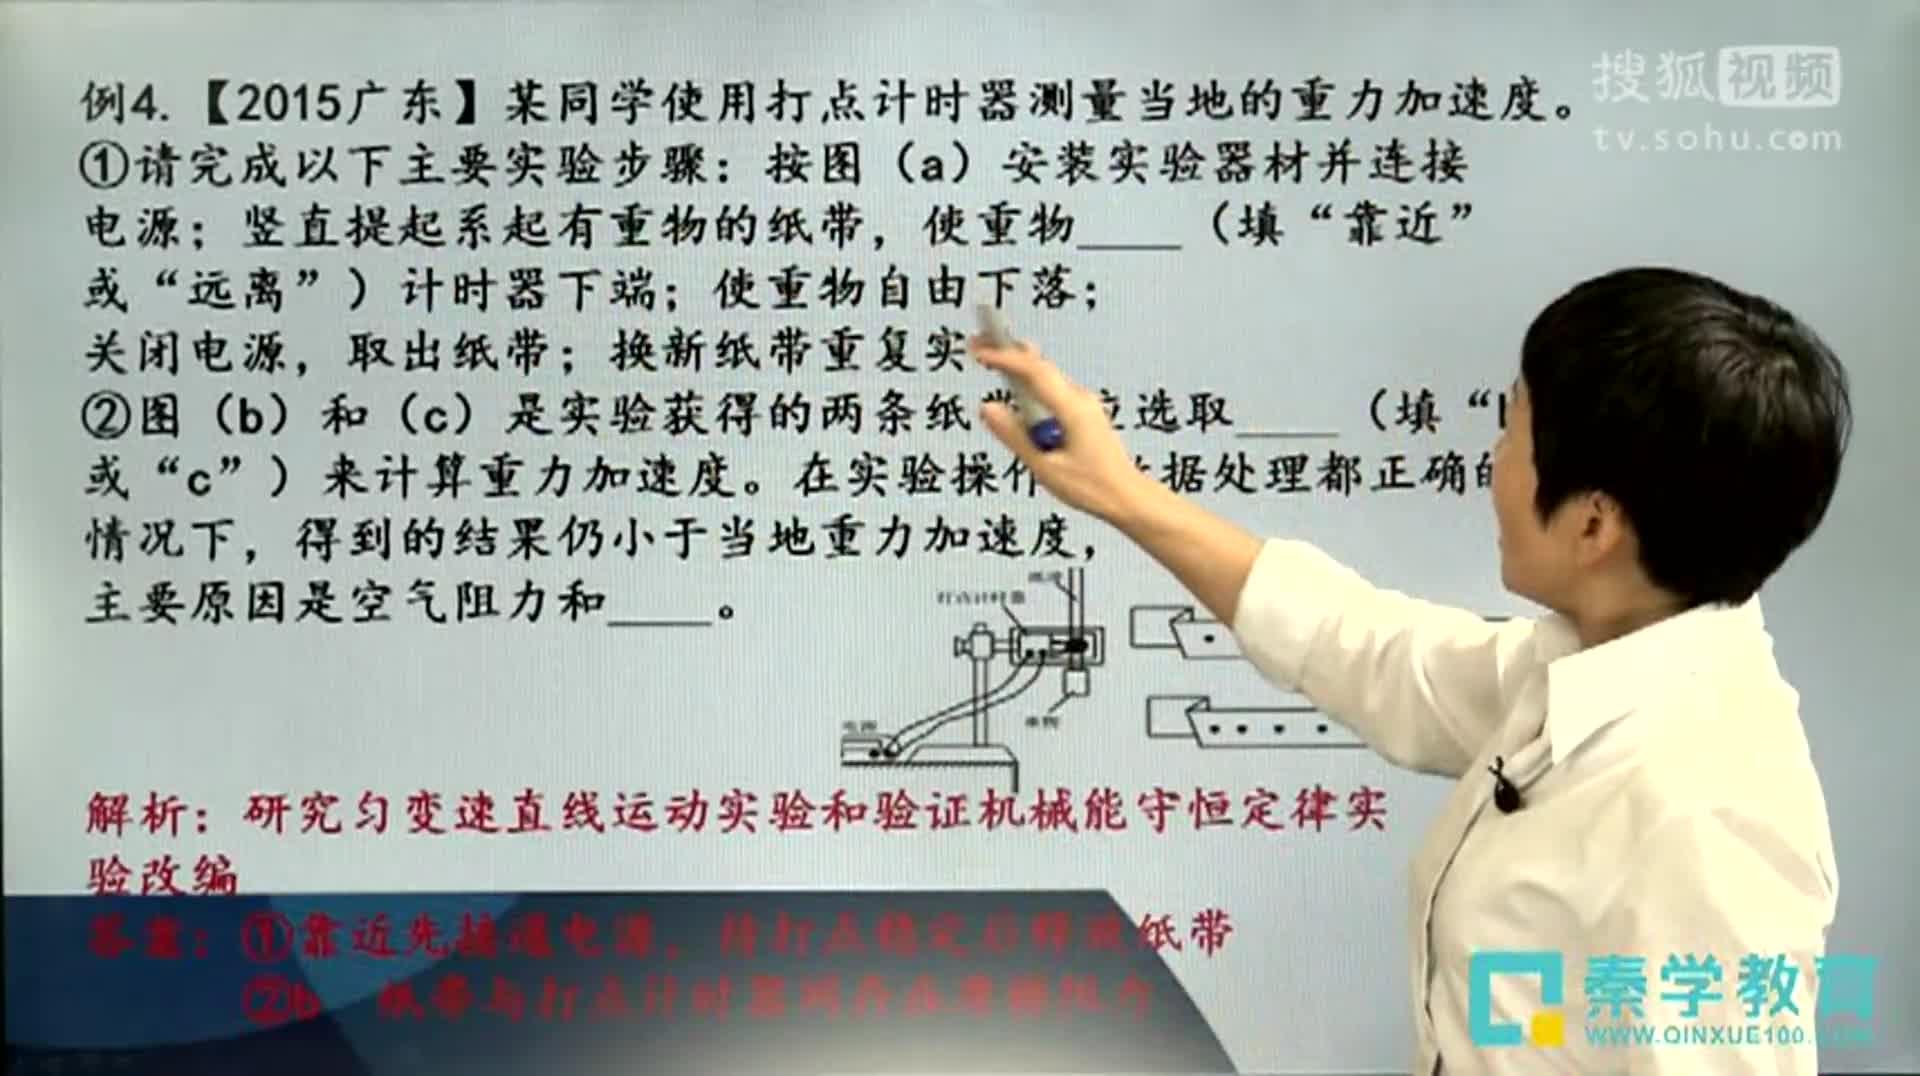 搜狐视频
tv.sohu.com
例4.【2015广东】某同学使用打点计时器测量当地的重力加速度。
①请完成以下主要实验步骤：按图（a）安装实验器材并连接
电源；竖直提起系起有重物的纸带，使重物____（填“靠近”
或“远离”）计时器下端；使重物自由下落；
关闭电源，取出纸带；换新纸带重复实
②图（b）和（c）是实验获得的两条纸 应选取____（填“
或“c”）来计算重力加速度。在实验操作 据处理都正确的
情况下，得到的结果仍小于当地重力加速度，
主要原因是空气阻力和____。
打点计时器
重物
电源
解析：研究匀变速直线运动实验和验证机械能守恒定律实
验改编
答案：①靠近先接通电源，待打点稳定后释放纸带
②b 纸带与打点计时器间
秦学教育
WWW.QINXUE100.COM